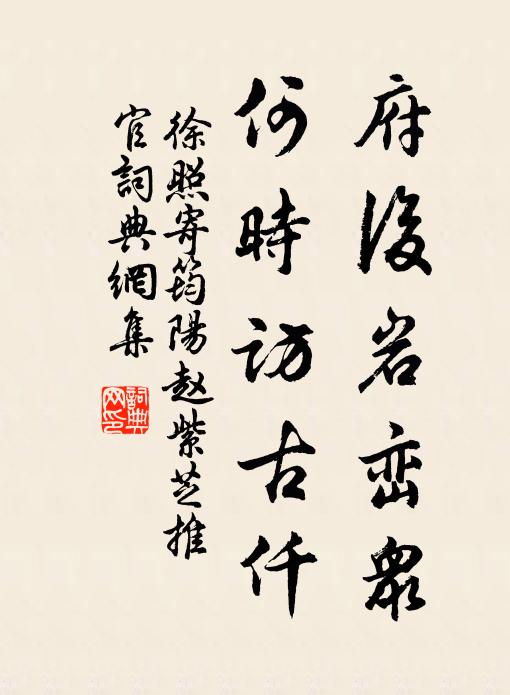 府後岩峦眾
何時訪古仟
徐照寄筠陽赵紫芝推
官詞典網集
詞典
网印